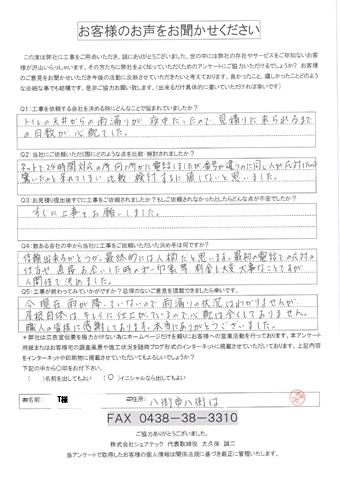 お客様のお声をお聞かせください
この度は弊社に工事をご用命いただき、誠にありがとうございました。世の中には弊社の存在やサービスをご存知ないお客
様が沢山いらっしゃいます。その方たちに弊社をよく知っていただくためのアンケートにご協力いただけるでしょうか? お客様
のご意見をお聞かせいただき今後の活動に反映させていただきたいと考えております。良かったこと、嬉しかったことどのよう
な些細な事でも結構です。是非ご協力お願い致します。(出来るだけ具体的に書いていただければ幸いです)
Q1:工事を依頼する会社を決める時にどんなことで悩まれていましたか?
トイレの天井からの雨漏りが、夜中だったので、見積りに来られるまで
の日数が心配でした。
Q2:当社にご依頼いただく際にどのような点を比較・検討されましたか?
ネットで24時間対応の所何ヶ所かに電話しましたが番号が違うのに同じ人が応対
驚いたのと呆れてしまい比較・検討するに値しないと思いました。
Q3:お見積り提出後すぐに工事をご依頼されましたか?もしご依頼されなかったとしたらどんな点が不安でしたか?
すぐに工事をお願しました。
Q4:数ある会社の中から当社に工事をご依頼いただいた決め手は何ですか?
信頼出来るかどうか。最終的には人柄だと思います。最初の電話での応対の
仕方や、直接お会いした時の第一印象等、料金も大変大事なことですが
人間性で決めました。
Q5:工事が終わってみていかがですか?忌憚のないご意見を頂戴できましたら幸いです。
今現在雨が降っていないので雨漏りの状況はわかりませんが、
屋根自体は、キレイに仕上がっているので心配は全くしておりません。
職人の皆様に感謝しております。本当にありがとうございました。
*弊社は広告宣伝費を力かけない為にホームページだけを頼りにお客様への営業活動を行っております。本アンケート
用紙またはお客様宅の調査風景や施工状況を随時ブログ形式のインターネットに掲載させていただいております。上記内容
をインターネットや印刷物に掲載させていただいてもよろしいでしょうか?
下記の中から○印をお付下さい。
( )名前を出してもよい (○)イニシャルなら出してもよい
御名前: T様 ご住所: 八街市八街は
FAX 0438-38-3310
ご協力ありがとうございました。
株式会社シェアテック 代表取締役 大久保 誠二
当アンケートで取得したお客様の個人情報は関係法規に基づき厳正に管理いたします。